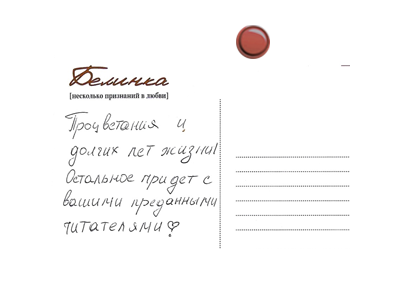 Белинка
[несколько признаний в любви]
Процветания и
долгих лет жизни!
Остальное придет с
вашими преданными
читателями ♡